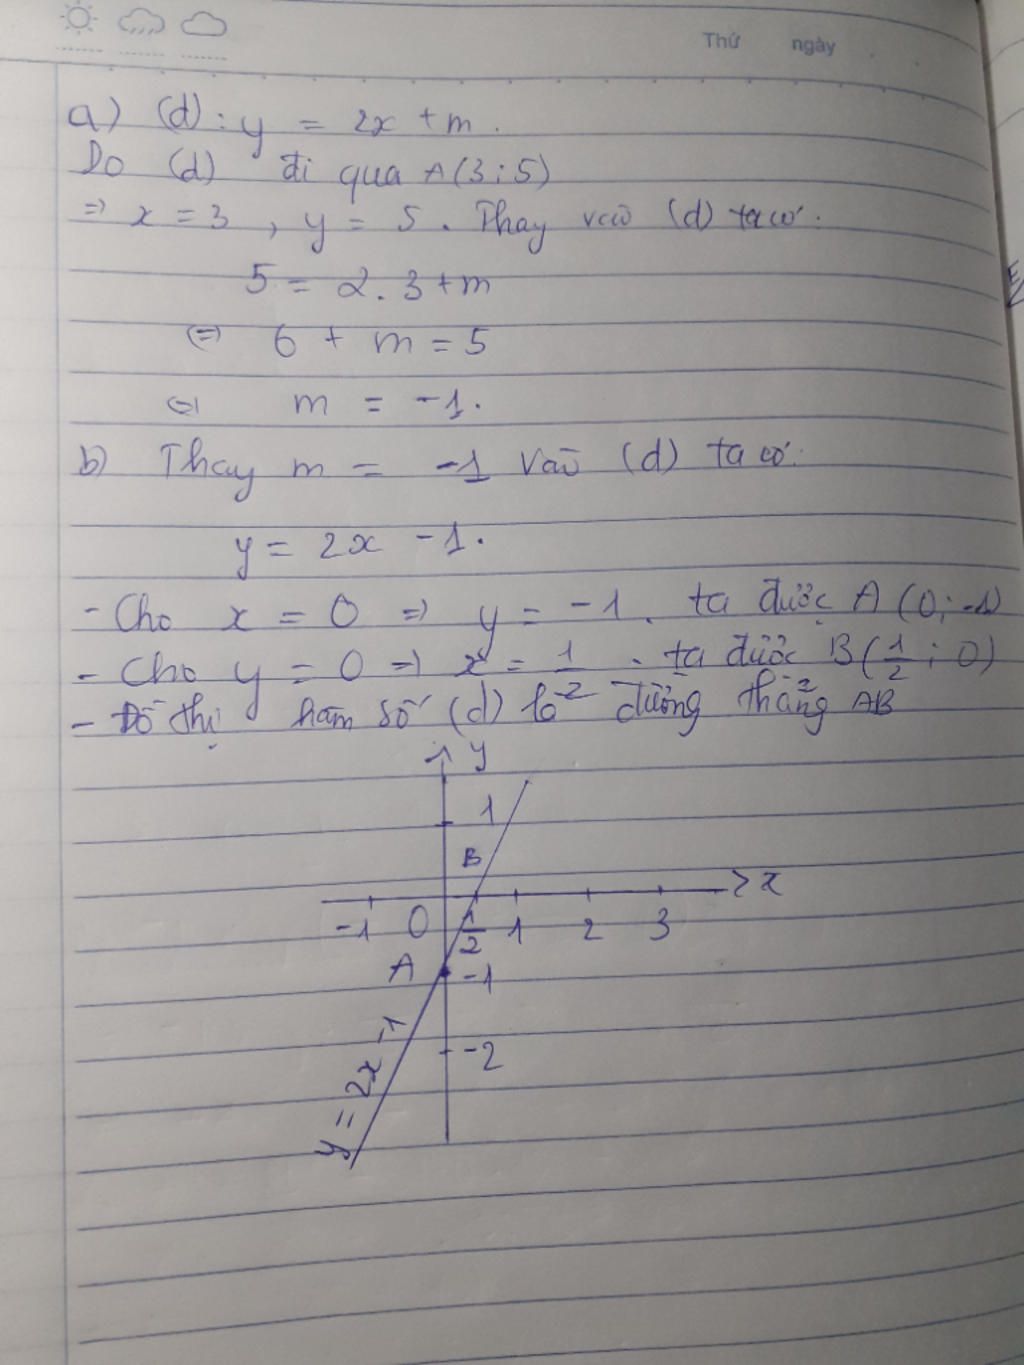 Thứ ngày
a) (d): y = 2x + m.
Do (d) đi qua A(3;5)
=> x = 3, y = 5. Thay vào (d) ta có:
5 = 2.3 + m
<=> 6 + m = 5
<=> m = -1.
b) Thay m = -1 vào (d) ta có:
y = 2x - 1.
- Cho x = 0 => y = -1. ta được A(0;-1)
- Cho y = 0 => x = 1/2. ta được B(1/2;0)
- Đồ thị hàm số (d) là đường thẳng AB
y
1
B
x
-1 0 1/2 1 2 3
A -1
-2
y = 2x - 1